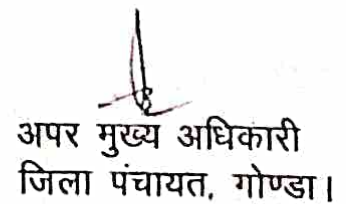 अपर मुख्य अधिकारी
जिला पंचायत, गोण्डा।